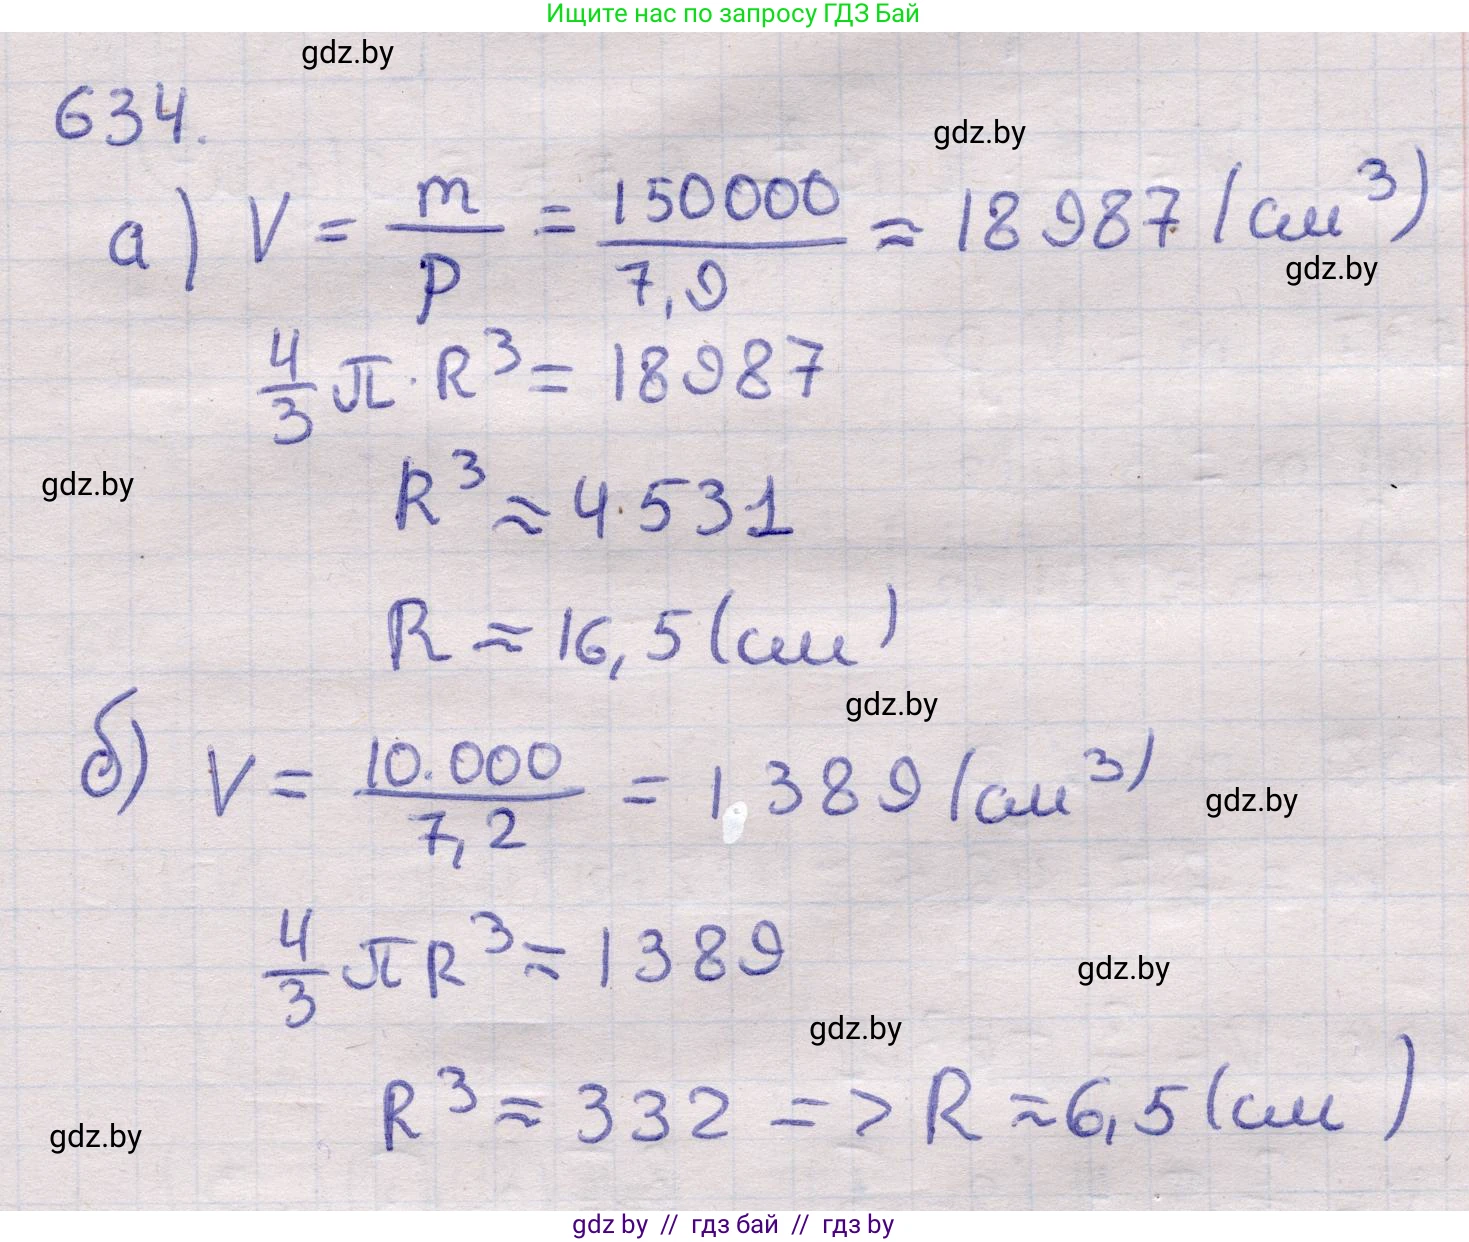 Ищите нас по запросу ГДЗ Бай
gdz.by
634.
gdz.by
а) V = m/ρ = 150000/7,9 ≈ 18987 (см³)
gdz.by
4/3 π · R³ = 18987
R³ ≈ 4531
gdz.by
R ≈ 16,5 (см)
gdz.by
б) V = 10.000/7,2 = 1 389 (см³)
gdz.by
4/3 π R³ ≈ 1389
gdz.by
gdz.by
R³ ≈ 332 => R ≈ 6,5 (см)
gdz.by
gdz by // гдз бай // гдз by